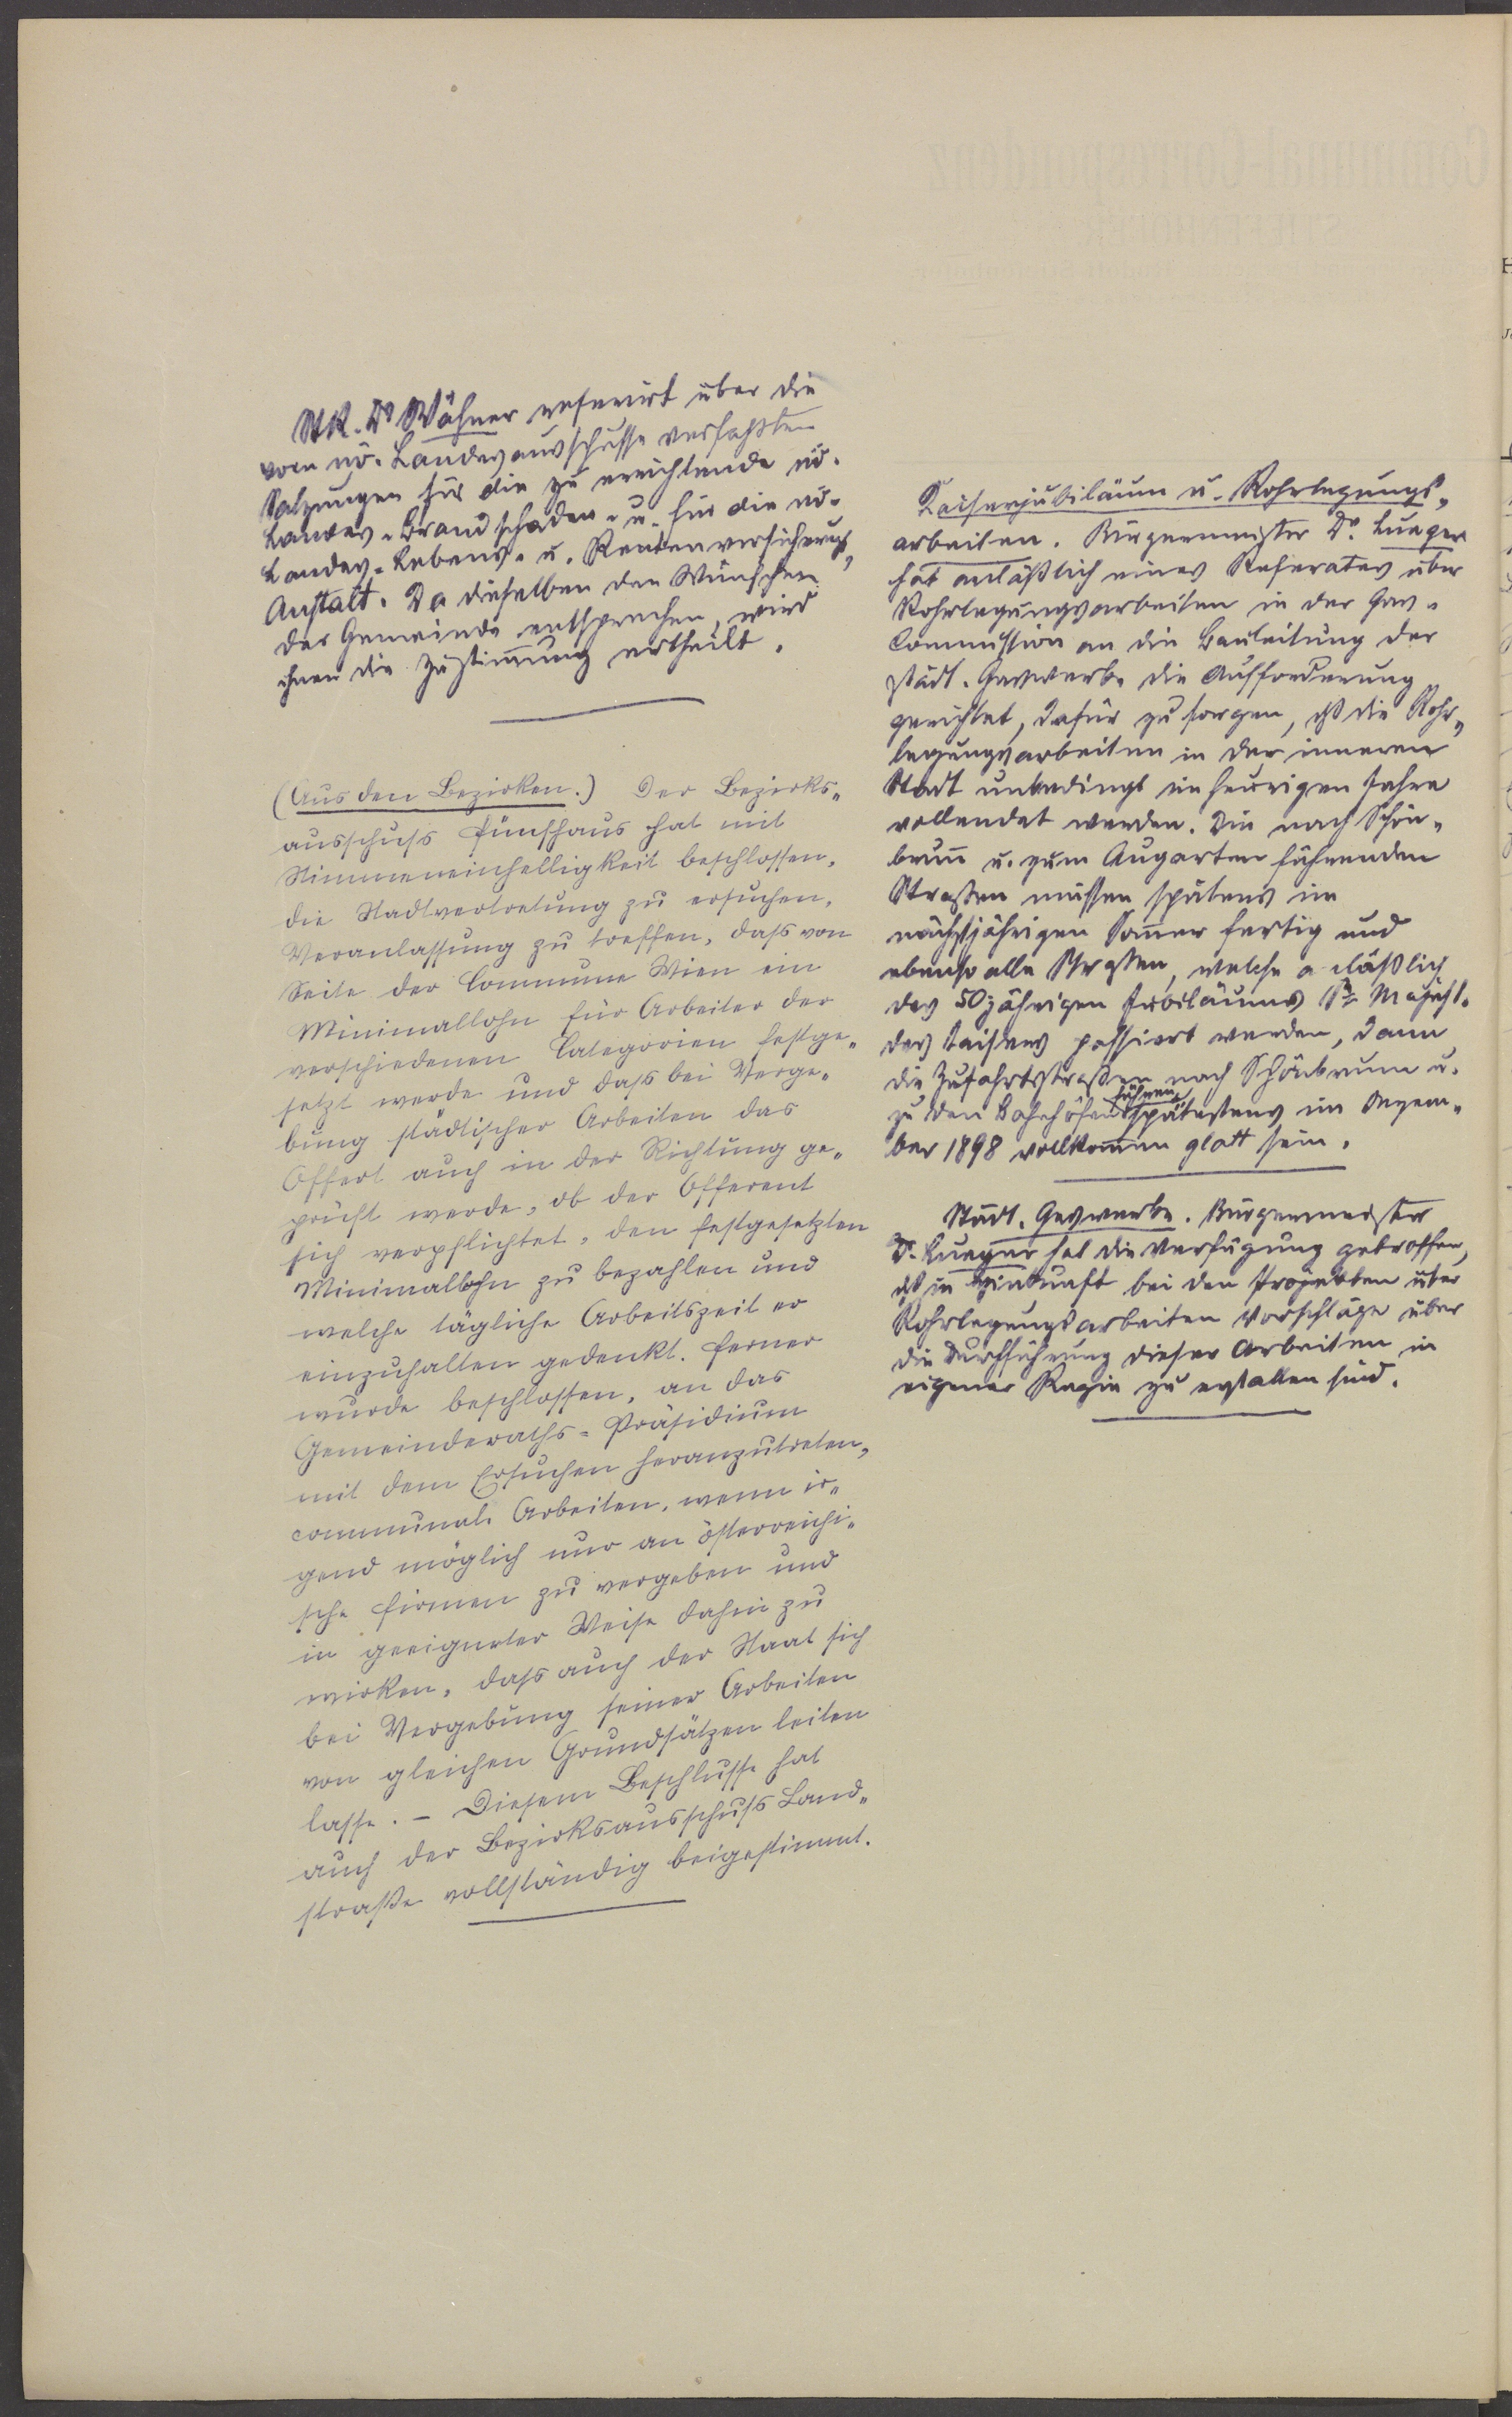 StR. Dr. Wähner referirt über die
vom nö. Landesausschusse verfaßten
Satzungen für die zu errichtende nö.
Landes-Brandschaden- u. für die nö.
Landes-Lebens- u. Rentenversicherungs-
Anstalt. Da dieselben den Wünschen
der Gemeinde entsprechen, wird
ihnen die Zustimmung ertheilt.
(Aus den Bezirken.) Der Bezirks-
ausschuss Fünfhaus hat mit
Stimmeneinhelligkeit beschlossen,
die Stadtvertretung zu ersuchen,
Veranlassung zu treffen, dass von
Seite der Commune Wien ein
Minimallohn für Arbeiter der
verschiedenen Categorien festge-
setzt werde und dass bei Verge-
bung städtischer Arbeiten das
Offert auch in der Richtung ge-
prüft werde, ob der Offerent
sich verpflichtet, den festgesetzten
Minimallohn zu bezahlen und
welche tägliche Arbeitszeit er
einzuhalten gedenkt. Ferner
wurde beschlossen, an das
Gemeinderaths-Präsidium
mit dem Ersuchen heranzutreten,
communale Arbeiten, wenn ir-
gend möglich nur an österreichi-
sche Firmen zu vergeben und
in geeigneter Weise dahin zu
wirken, dass auch der Staat sich
bei Vergebung seiner Arbeiten
von gleichen Grundsätzen leiten
lasse. – Diesem Beschlusse hat
auch der Bezirksausschuss Land-
straße vollständig beigestimmt.
Kaiserjubiläum u. Rohrlegungs-
arbeiten. Bürgermeister Dr. Lueger
hat anläßlich eines Referates über
Rohrlegungsarbeiten in der Gas-
Commission an die Bauleitung der
städt. Gaswerke die Aufforderung
gerichtet, dafür zu sorgen, dß die Rohr-
legungsarbeiten in der inneren
Stadt unbedingt im heurigen Jahre
vollendet werden. Die nach Schön-
brunn u. zum Augarten führenden
Straßen müssen spätens im
nächstjährigen Sommer fertig und
ebenso alle Straßen, welche anläßlich
des 50jährigen Jubiläums Sr. Majest.
des Kaisers passiert werden, dann
die Zufahrtsstraßen nach Schönbrunn u.
zu den Bahnhöfen führen spätestens im Dezem-
ber 1898 vollkommen glatt sein.
Städt. Gaswerke. Bürgermeister
Dr. Lueger hat die Verfügung getroffen,
dß in Hinkunft bei den Projekten über
Rohrlegungsarbeiten Vorschläge über
die Durchführung dieser Arbeiten in
eigener Regie zu erstatten sind.